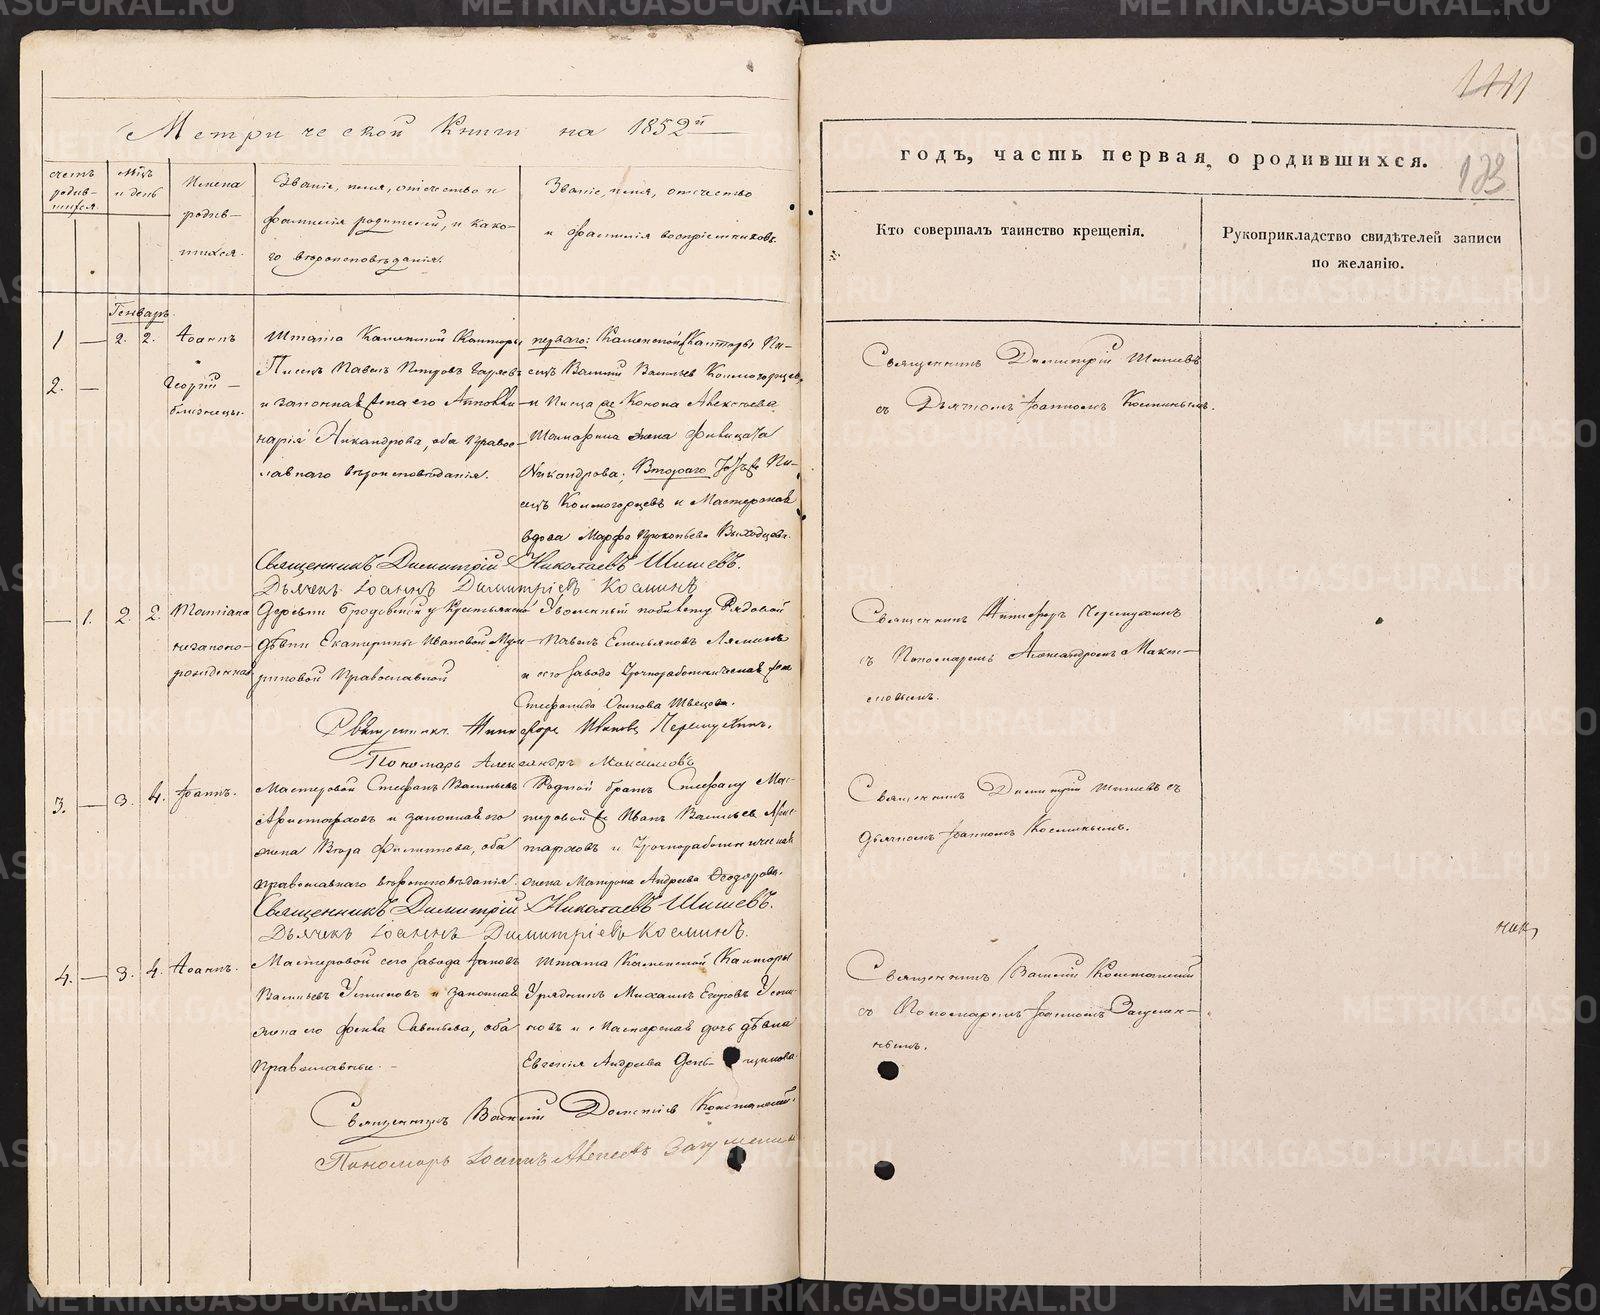 Метрической Книги на 1852й
счетъ родив-шихся.
Мцъ и день
Имена родив-шихся.
Званіе, имя, отчество и
фамилія родителей, и како-
го вѣроисповѣданія.
Званіе, имя, отчество
и фамилія воспріемниковъ.
Генварь.
1 — 2. 2. Іоаннъ
2. — Георгій —
близнецы.
Штата Каменской Канторы
Писецъ Павелъ Петровъ
и законная жена его Апполи-
нарія Никандрова, оба право-
славнаго вѣроисповѣданія.
перваго: Каменской Канторы Пи-
сецъ Василій Васильев Колмогорцев
и Писца Конона Алексѣева
жена Фелицата
Никандрова; Втораго тотъ же Пи-
сецъ Колмогорцевъ и Мастерская
вдова Марфа Прокопьева Выходцева.
Священникъ Димитрій Николаевъ Шишевъ.
Дьячекъ Іоаннъ Димитріевъ Косминъ
— 1. 2. 2. Татіана
незаконо-
рожденная
Деревни Бродовской у Крестьянской
дѣвки Екатерины Ивановой
Православной
Уволенный по билету Рядовой
Павелъ Емельяновъ Ляминъ
и сего завода Урочноработническая жена
Стефанида Осипова Швецова.
Священникъ Никифоръ Ивановъ
Пономарь Александръ Максимовъ
3. — 3. 4. Іоаннъ.
Мастеровой Стефанъ Васильевъ
Аристарховъ и законная его
жена Вѣра Филиппова, оба
православнаго вѣроисповѣданія.
Родной братъ Стефану Мас-
теровой же Иванъ Васильевъ Арис-
тарховъ и Урочноработническая
жена Матрона Андреева Ѳеодорова.
Священникъ Димитрій Николаевъ Шишевъ.
Дьячекъ Іоаннъ Димитріевъ Косминъ.
4. — 3. 4. Іоаннъ.
Мастеровой сего завода Іаковъ
Васильевъ Устиновъ и законная
жена его Ѳекла Савельева, оба
Православные. —
Штата Каменской Канторы
Урядникъ Михаилъ Егоровъ Усти-
новъ и Мастерская дочь дѣвка
Евгенія Андреева
Священникъ Василій
Пономарь Іоаннъ Алексѣевъ
141
133
годъ, часть первая, о родившихся.
Кто совершалъ таинство крещенія.
Рукоприкладство свидѣтелей записи
по желанію.
Священникъ Димитрій Шишевъ
съ Дьячкомъ Іоанномъ Косминымъ.
Священникъ Никифоръ
съ Пономаремъ Александромъ Макси-
мовымъ.
Священникъ Димитрій Шишевъ съ
дьячкомъ Іоанномъ Косминымъ.
Священникъ Василій
съ Пономаремъ Іоанномъ
METRIKI.GASO-URAL.RU